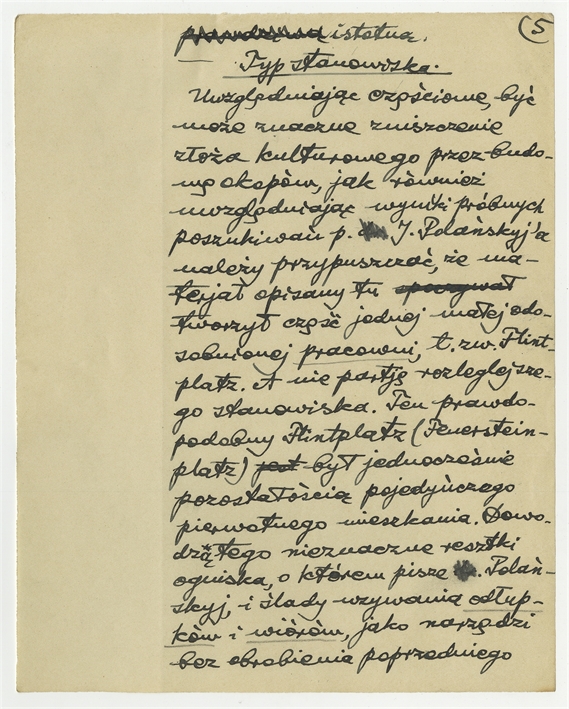 (5
istotną.
Typ stanowiska.
Uwzględniając częściowe, być
może znaczne zniszczenie
złoża kulturowego przez budo-
wę okopów, jak również
uwzględniając wyniki próbnych
poszukiwań p. J. Polańskyj'a
należy przypuszczać, że ma-
terjał opisany tu spoczywał
tworzył część jednej małej odo-
sobnionej pracowni, t. zw. Flint-
platz. A nie partję rozleglejsze-
go stanowiska. Ten prawdo-
podobny Flintplatz (Feuerstein-
platz) jest był jednocześnie
pozostałością pojedyńczego
pierwotnego mieszkania. Dowo-
dzą tego nieznaczne resztki
ogniska, o którem pisze . Polań-
skyj, i ślady używania odłup-
ków i wiórów, jako narzędzi
bez obrobienia poprzedniego